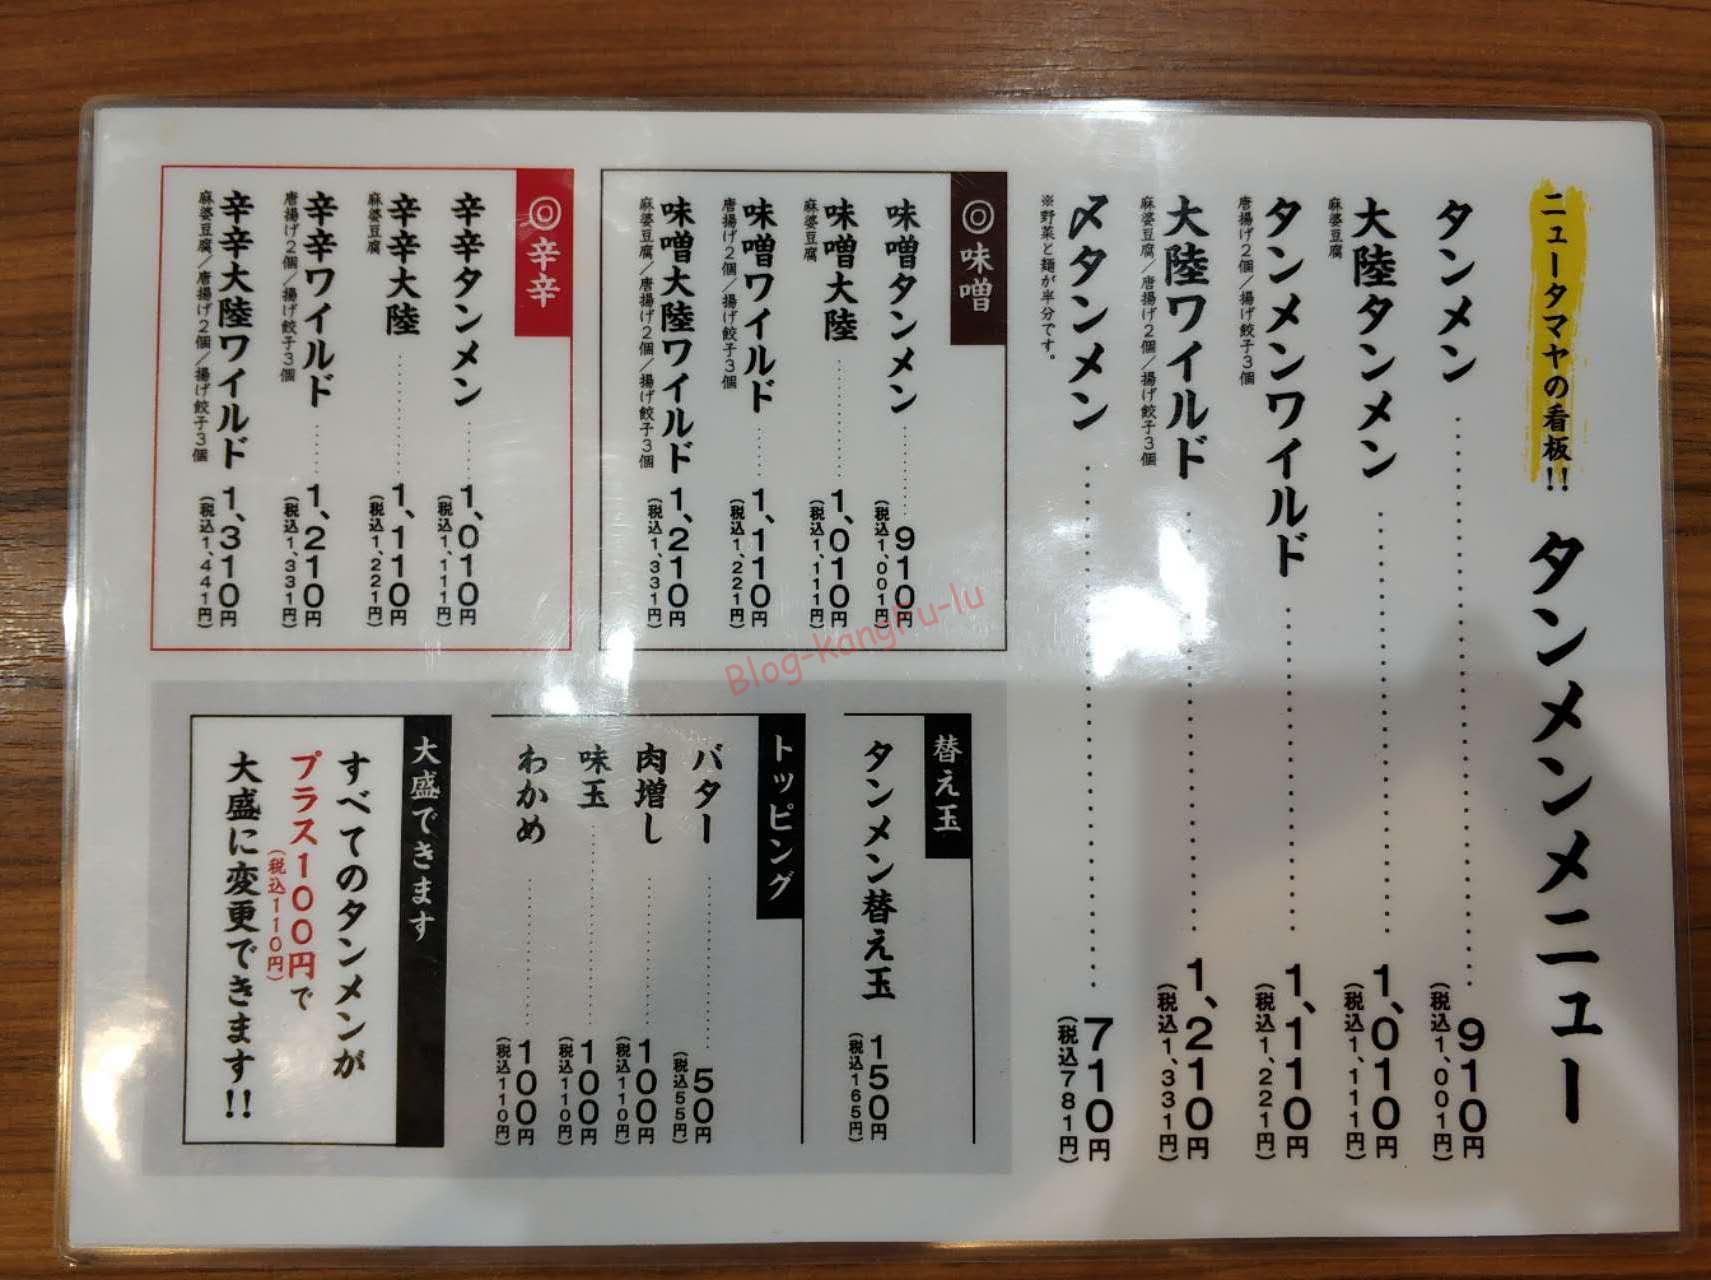 ニュータマヤの看板!! タンメンメニュー
タンメン 910円
(税込1,001円)
大陸タンメン 1,010円
麻婆豆腐 (税込1,111円)
タンメンワイルド 1,110円
唐揚げ2個/揚げ餃子3個 (税込1,221円)
大陸ワイルド 1,210円
麻婆豆腐/唐揚げ2個/揚げ餃子3個 (税込1,331円)
〆タンメン 710円
※野菜と麺が半分です。 (税込781円)
◎味噌
味噌タンメン 910円
(税込1,001円)
味噌大陸 1,010円
麻婆豆腐 (税込1,111円)
味噌ワイルド 1,110円
唐揚げ2個/揚げ餃子3個 (税込1,221円)
味噌大陸ワイルド 1,210円
麻婆豆腐/唐揚げ2個/揚げ餃子3個 (税込1,331円)
◎辛辛
辛辛タンメン 1,010円
(税込1,111円)
辛辛大陸 1,110円
麻婆豆腐 (税込1,221円)
辛辛ワイルド 1,210円
唐揚げ2個/揚げ餃子3個 (税込1,331円)
辛辛大陸ワイルド 1,310円
麻婆豆腐/唐揚げ2個/揚げ餃子3個 (税込1,441円)
替え玉
タンメン替え玉 150円
(税込165円)
トッピング
バター 50円
(税込55円)
肉増し 100円
(税込110円)
味玉 100円
(税込110円)
わかめ 100円
(税込110円)
大盛できます
すべてのタンメンが
プラス100円で
(税込110円)
大盛に変更できます!!
Blog-kangFu-lu